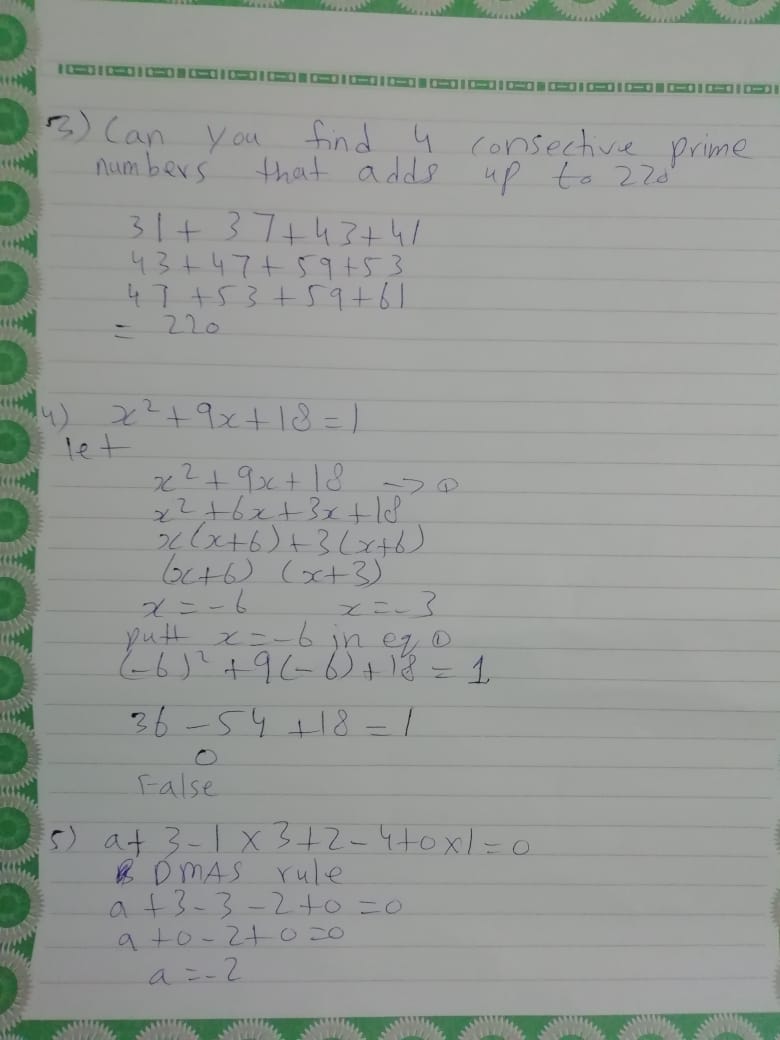 3) Can you find 4 consective prime
numbers that adds up to 220
31 + 37 + 43 + 41
43 + 47 + 59 + 53
47 + 53 + 59 + 61
= 220
4) x² + 9x + 18 = 1
let
x² + 9x + 18 → ①
x² + 6x + 3x + 18
x(x+6) + 3(x+6)
(x+6) (x+3)
x = -6 x = -3
putt x = -6 in eq ①
(-6)² + 9(-6) + 18 = 1
36 - 54 + 18 = 1
0
False
5) a + 3 - 1 x 3 + 2 - 4 + 0 x 1 = 0
DMAS rule
a + 3 - 3 - 2 + 0 = 0
a + 0 - 2 + 0 = 0
a = -2